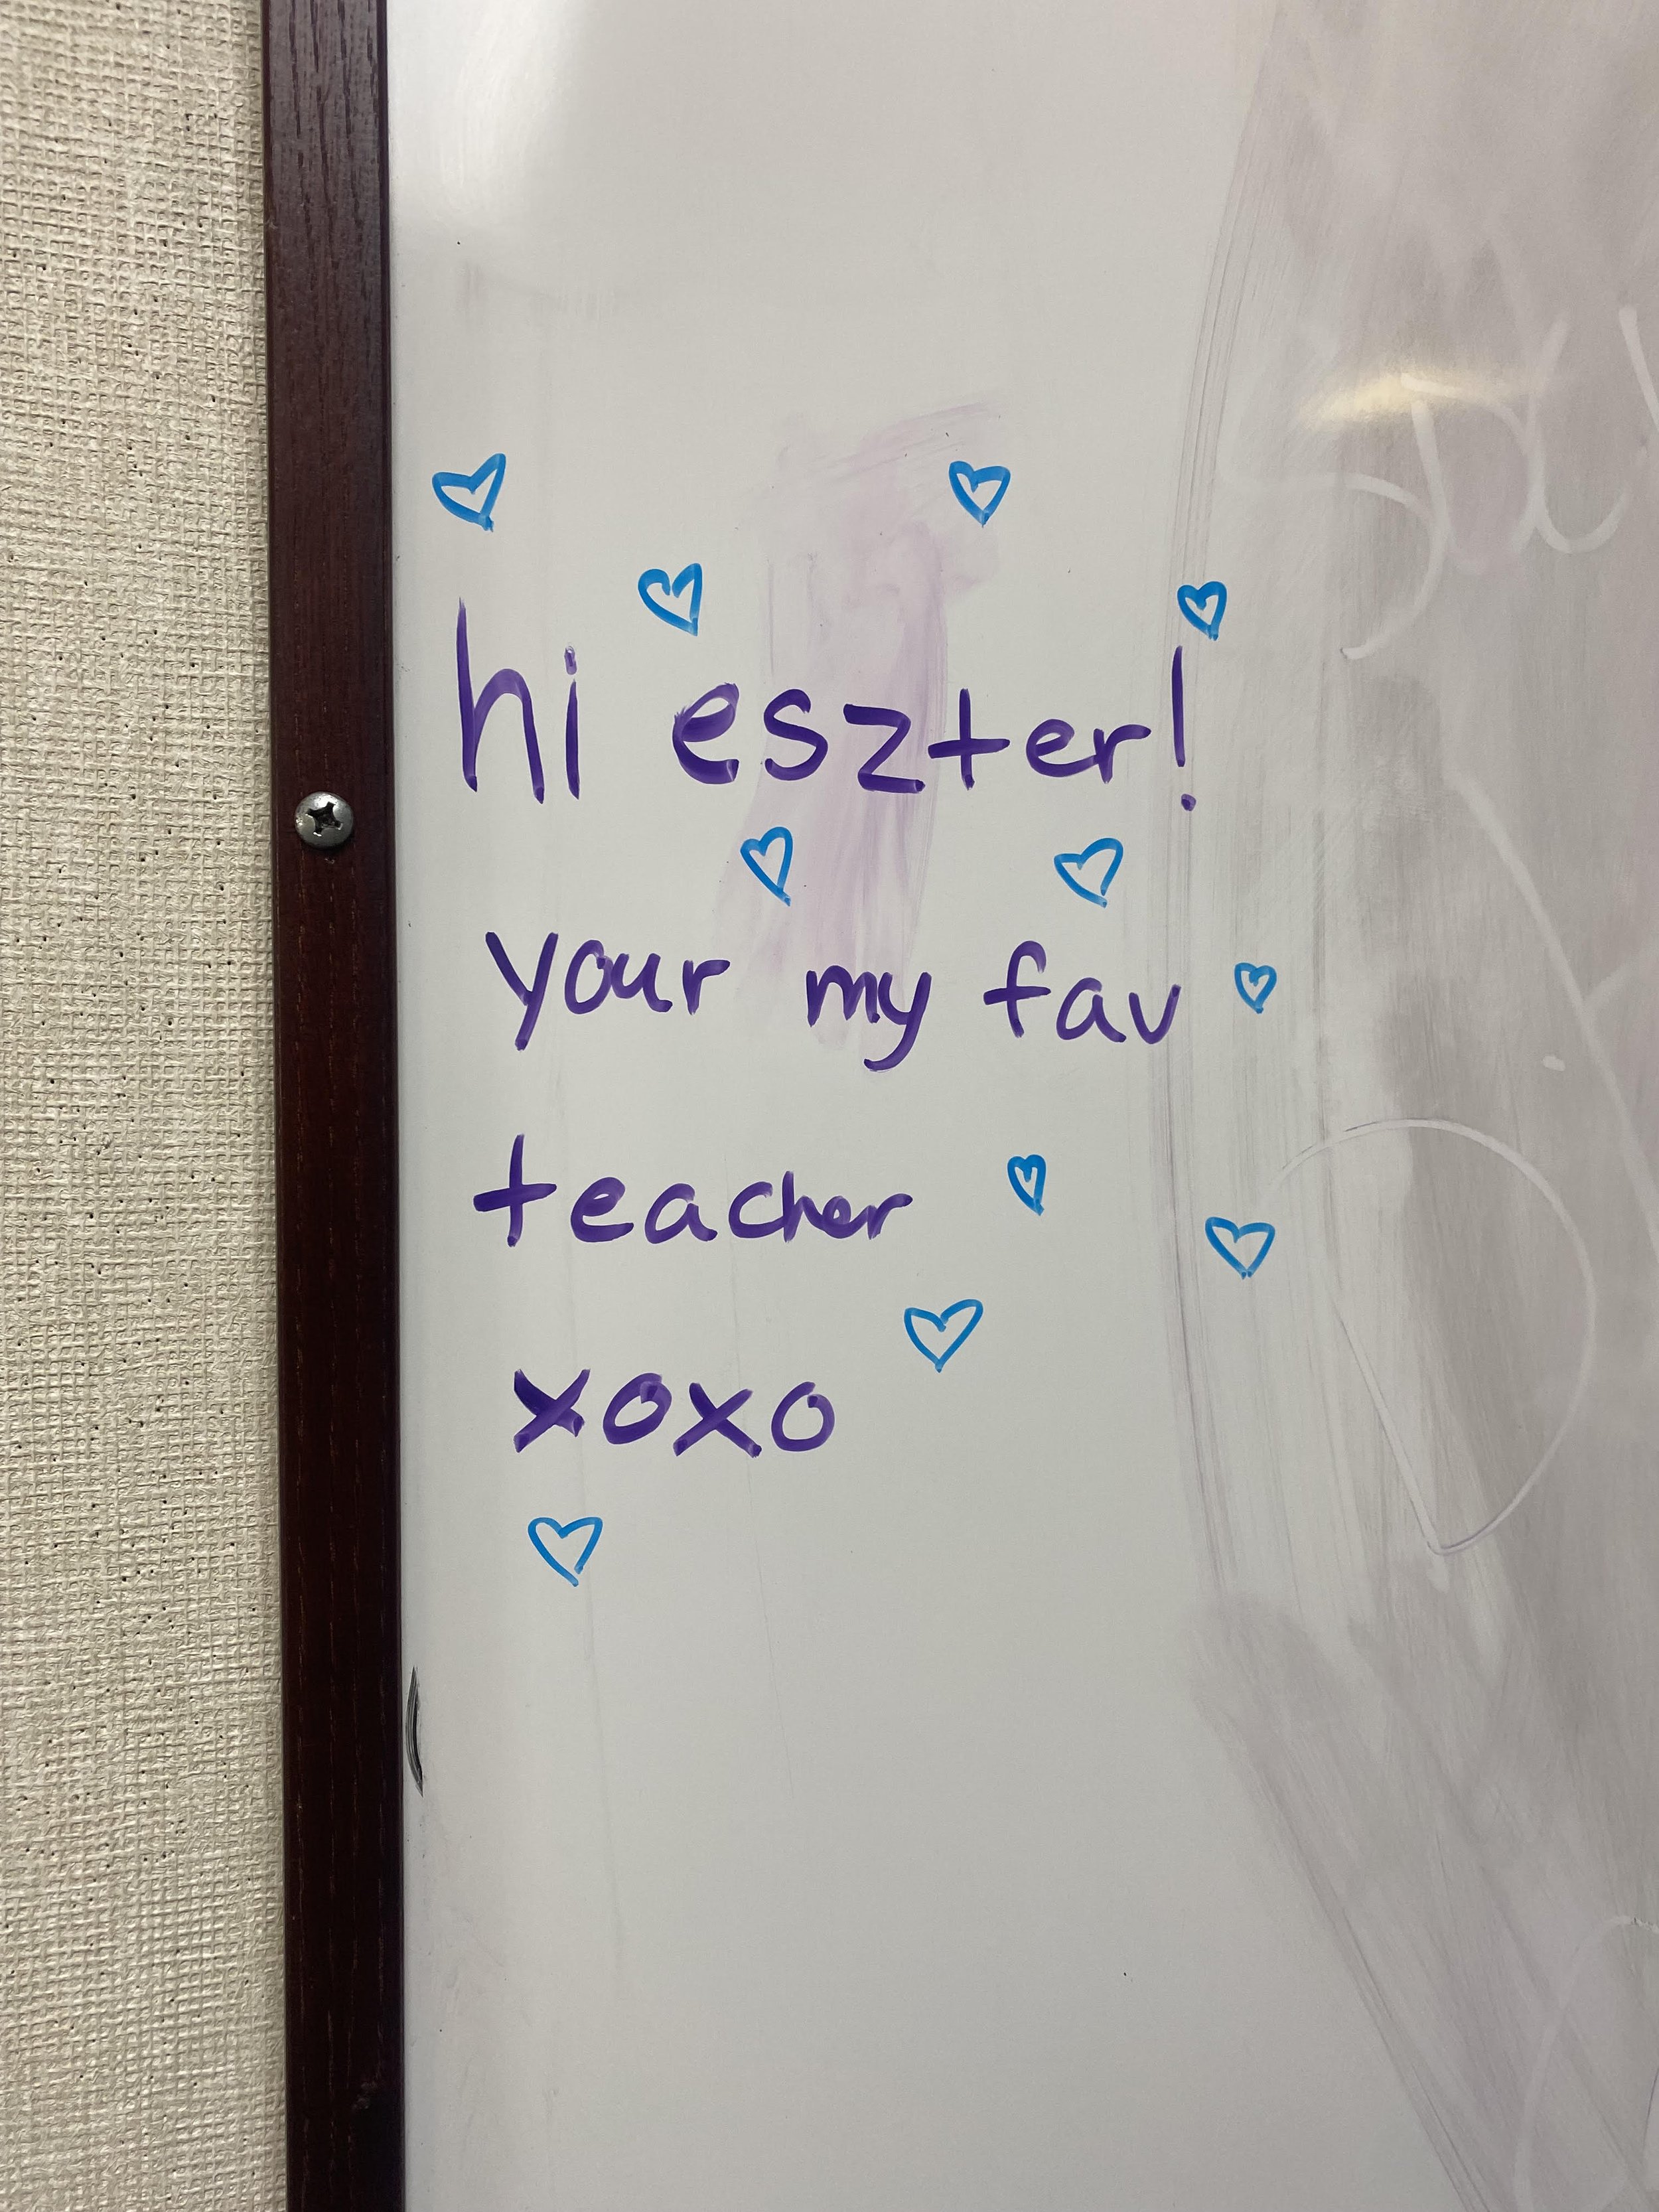 hi eszter!
your my fav
teacher
xoxo